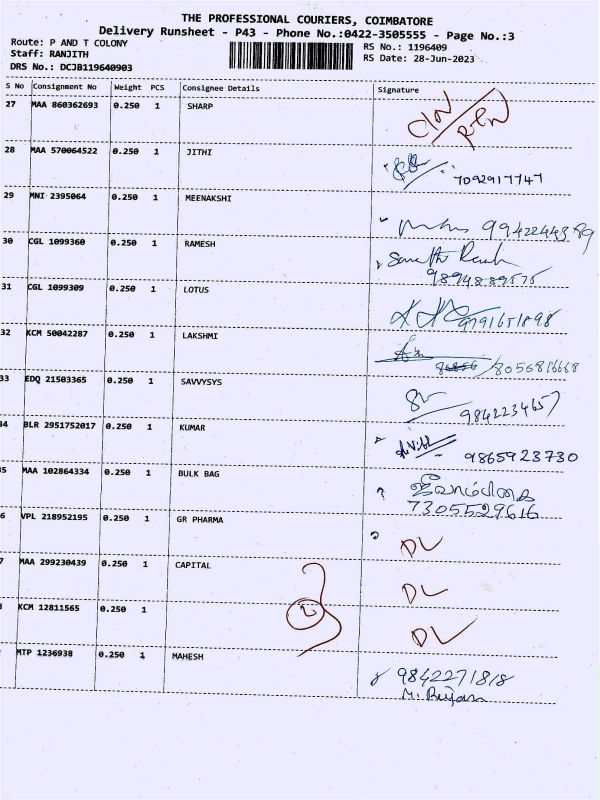 THE PROFESSIONAL COURIERS, COIMBATORE
Delivery Runsheet - P43 - Phone No.:0422-3505555 - Page No.:3
Route: P AND T COLONY RS No.: 1196409
Staff: RANJITH RS Date: 28-Jun-2023
DRS No.: DCJB119640903
S No Consignment No Weight PCS Consignee Details Signature
27 MAA 860362693 0.250 1 SHARP
28 MAA 570064522 0.250 1 JITHI 7092917747
29 MNI 2395064 0.250 1 MEENAKSHI 9942244389
30 CGL 1099360 0.250 1 RAMESH
9894889575
31 CGL 1099309 0.250 1 LOTUS 9791651898
32 KCM 50042287 0.250 1 LAKSHMI 8056816668
33 EDQ 21503365 0.250 1 SAVVYSYS 9842234657
34 BLR 2951752017 0.250 1 KUMAR 9865923730
35 MAA 102864334 0.250 1 BULK BAG
7305529616
6 VPL 218952195 0.250 1 GR PHARMA DL
7 MAA 299230439 0.250 1 CAPITAL DL
KCM 12811565 0.250 1 2 DL
MTP 1236938 0.250 1 MAHESH 9842271818